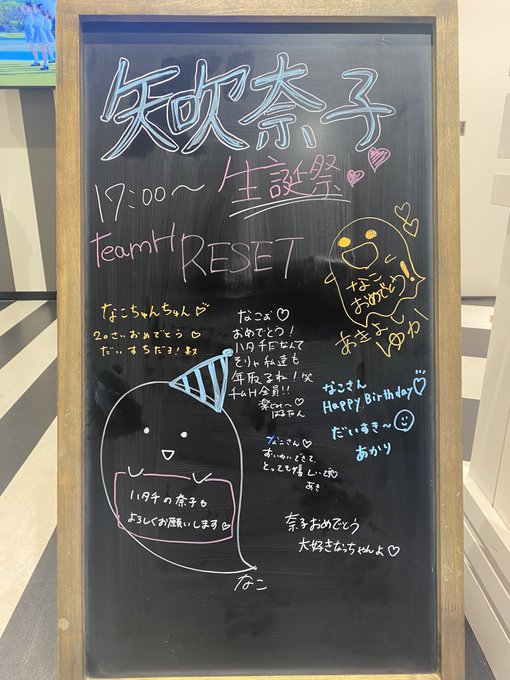 矢吹奈子
17:00〜 生誕祭
teamH RESET
なこ
おめでとう!
あきよし
ゆか
なこちゃんちゃん
20さいおめでとう♡
だいすちだよ!
なこお♡
おめでとう!
ハタチだなんて
そりゃ私達も
年取るね!笑
チームH全員!!
楽しも〜♡
はるたん
なこさん
Happy Birthday♡
だいすき〜
あかり
なこさん♡
お祝いできて、
とっても嬉しいです
あき
ハタチの奈子も
よろしくお願いします♡
なこ
奈子おめでとう
大好きなっちゃんよ♡